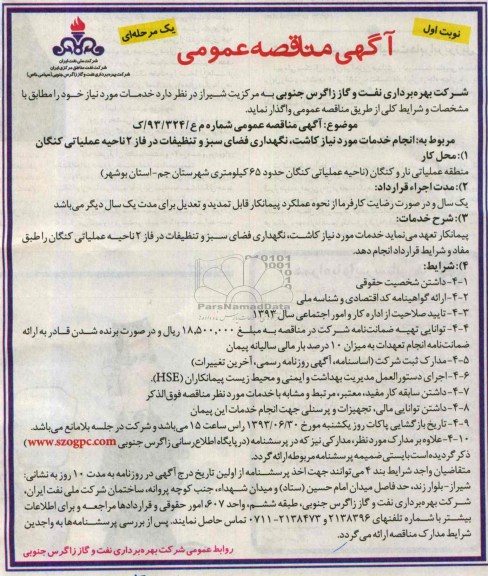 نوبت اول
یک مرحله‌ای
آگهی مناقصه عمومی
شرکت ملی نفت ایران
شرکت نفت مناطق مرکزی ایران
شرکت بهره برداری نفت و گاز زاگرس جنوبی (سهامی خاص)
شرکت بهره‌برداری نفت و گاز زاگرس جنوبی به مرکزیت شیراز در نظر دارد خدمات مورد نیاز خود را مطابق با
مشخصات و شرایط کلی از طریق مناقصه عمومی واگذار نماید.
موضوع: آگهی مناقصه عمومی شماره م ع/۹۳/۳۲۴/ک
مربوط به: انجام خدمات مورد نیاز کاشت، نگهداری فضای سبز و تنظیفات در فاز ۲ ناحیه عملیاتی کنگان
۱): محل کار
منطقه عملیاتی نار و کنگان (ناحیه عملیاتی کنگان حدود ۶۵ کیلومتری شهرستان جم-استان بوشهر)
۲): مدت اجراء قرارداد:
یک سال و در صورت رضایت کارفرما از نحوه عملکرد پیمانکار قابل تمدید و تعدیل برای مدت یک سال دیگر می‌باشد
۳): شرح خدمات:
پیمانکار تعهد می‌نماید خدمات مورد نیاز کاشت، نگهداری فضای سبز و تنظیفات در فاز ۲ ناحیه عملیاتی کنگان را طبق
مفاد و شرایط قرارداد انجام دهد.
۴): شرایط:
۴-۱-داشتن شخصیت حقوقی
۴-۲-ارائه گواهینامه کد اقتصادی و شناسه ملی
۴-۳-تایید صلاحیت از اداره کار و امور اجتماعی سال ۱۳۹۳
۴-۴- توانایی تهیه ضمانت‌نامه شرکت در مناقصه به مبلغ ۱۸,۵۰۰,۰۰۰ ریال و در صورت برنده شدن قادر به ارائه
ضمانت‌نامه انجام تعهدات به میزان ۱۰ درصد بار مالی سالیانه پیمان
۴-۵-مدارک ثبت شرکت (اساسنامه، آگهی روزنامه رسمی، آخرین تغییرات)
۴-۶-اجرای دستورالعمل مدیریت بهداشت و ایمنی و محیط زیست پیمانکاران (HSE).
۴-۷-داشتن سابقه کار مفید، معتبر، مرتبط و مشابه با خدمات مورد نظر مناقصه فوق الذکر
۴-۸-داشتن توانایی مالی، تجهیزات و پرسنلی جهت انجام خدمات این پیمان
۴-۹-تاریخ بازگشایی پاکات روز یکشنبه مورخ ۱۳۹۳/۰۶/۳۰ راس ساعت ۱۵ می‌باشد و شرکت در جلسه بلامانع می‌باشد.
۴-۱۰-علاوه بر مدارک مورد نظر، مدارکی نیز که در پرسشنامه (در پایگاه اطلاع رسانی زاگرس جنوبی www.szogpc.com)
ذکر گردیده است بایستی ضمیمه پرسشنامه مربوطه ارائه گردد.
متقاضیان واجد شرایط بند ۴ می‌توانند جهت اخذ پرسشنامه از اولین تاریخ درج آگهی در روزنامه به مدت ۱۰ روز به نشانی:
شیراز-بلوار زند، حد فاصل میدان امام حسین (ستاد) و میدان شهداء، جنب کوچه پروانه، ساختمان شرکت ملی نفت ایران،
شرکت بهره برداری نفت و گاز زاگرس جنوبی، طبقه ششم، واحد ۶۰۷، امور حقوقی و قراردادها مراجعه و برای اطلاعات
بیشتر با شماره تلفنهای ۲۱۳۸۳۹۶ و ۲۱۳۸۴۷۳-۰۷۱۱ تماس حاصل نمایند. پس از بررسی پرسشنامه‌ها به واجدین
شرایط مدارک مناقصه ارائه می‌گردد.
روابط عمومی شرکت بهره برداری نفت و گاز زاگرس جنوبی